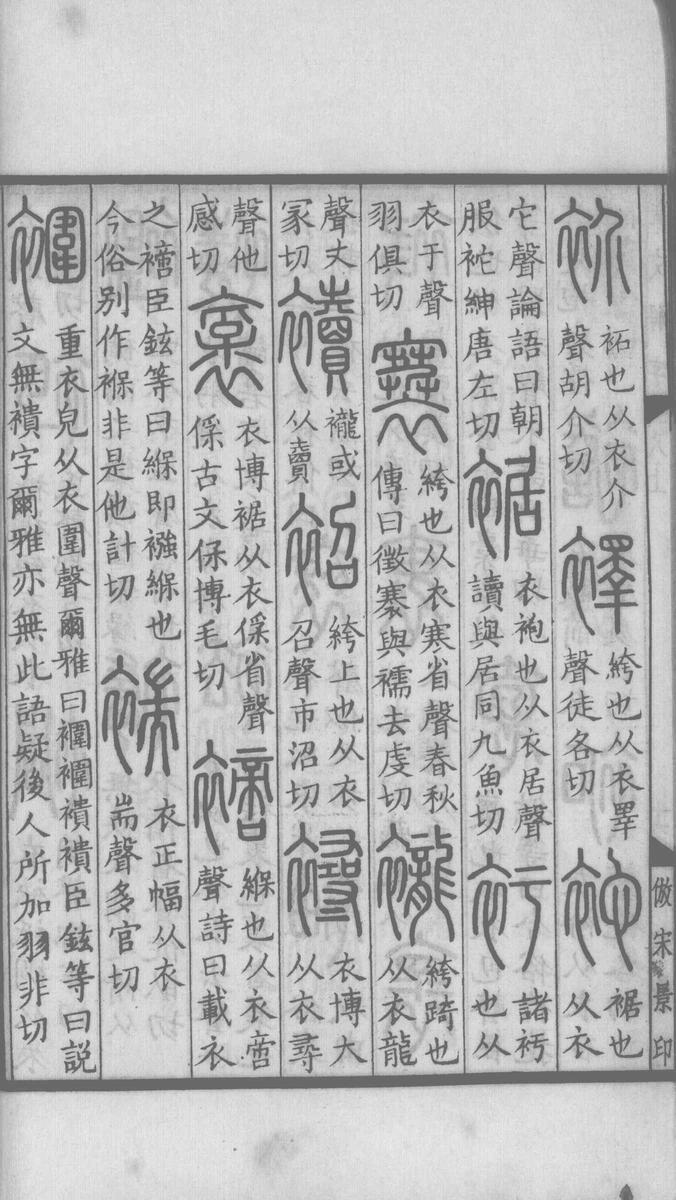 衸袥也从衣介
聲胡介切
襗絝也从衣睪
聲徒各切
袉裾也
从衣
它聲論語曰朝
服袉紳唐左切
裾衣袍也从衣居聲
讀與居同九魚切
衧諸衧
也从
衣于聲
羽俱切
褰絝也从衣寒省聲春秋
傳曰徵褰與襦去虔切
襱絝踦也
从衣龍
聲丈
冢切
襩襱或
从賣
袑絝上也从衣
召聲市沼切
襑衣博大
从衣尋
聲他
感切
襃衣博裾从衣保省聲
保古文保博毛切
䙗緥也从衣啻
聲詩曰載衣
之䙗臣鉉等曰緥即襁緥也
今俗別作褓非是他計切
褍衣正幅从衣
耑聲多官切
䙟重衣皃从衣圍聲爾雅曰䙟䙟襀襀臣鉉等曰説
文無襀字爾雅亦無此語疑後人所加羽非切
倣宋景印